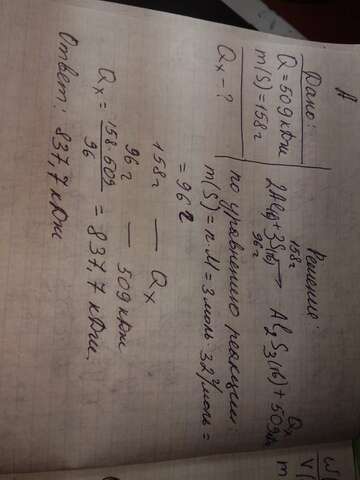 Дано:
Q = 509 кДж
m(S) = 158 г
Qx - ?
Решение:
158 г Qx
2Al(тв) + 3S(тв) → Al2S3(тв) + 509 кДж
96 г
по уравнению реакции:
m(S) = n·M = 3 моль·32 г/моль =
= 96 г
158 г — Qx
96 г — 509 кДж
Qx = 158·509 / 96 = 837,7 кДж.
Ответ: 837,7 кДж